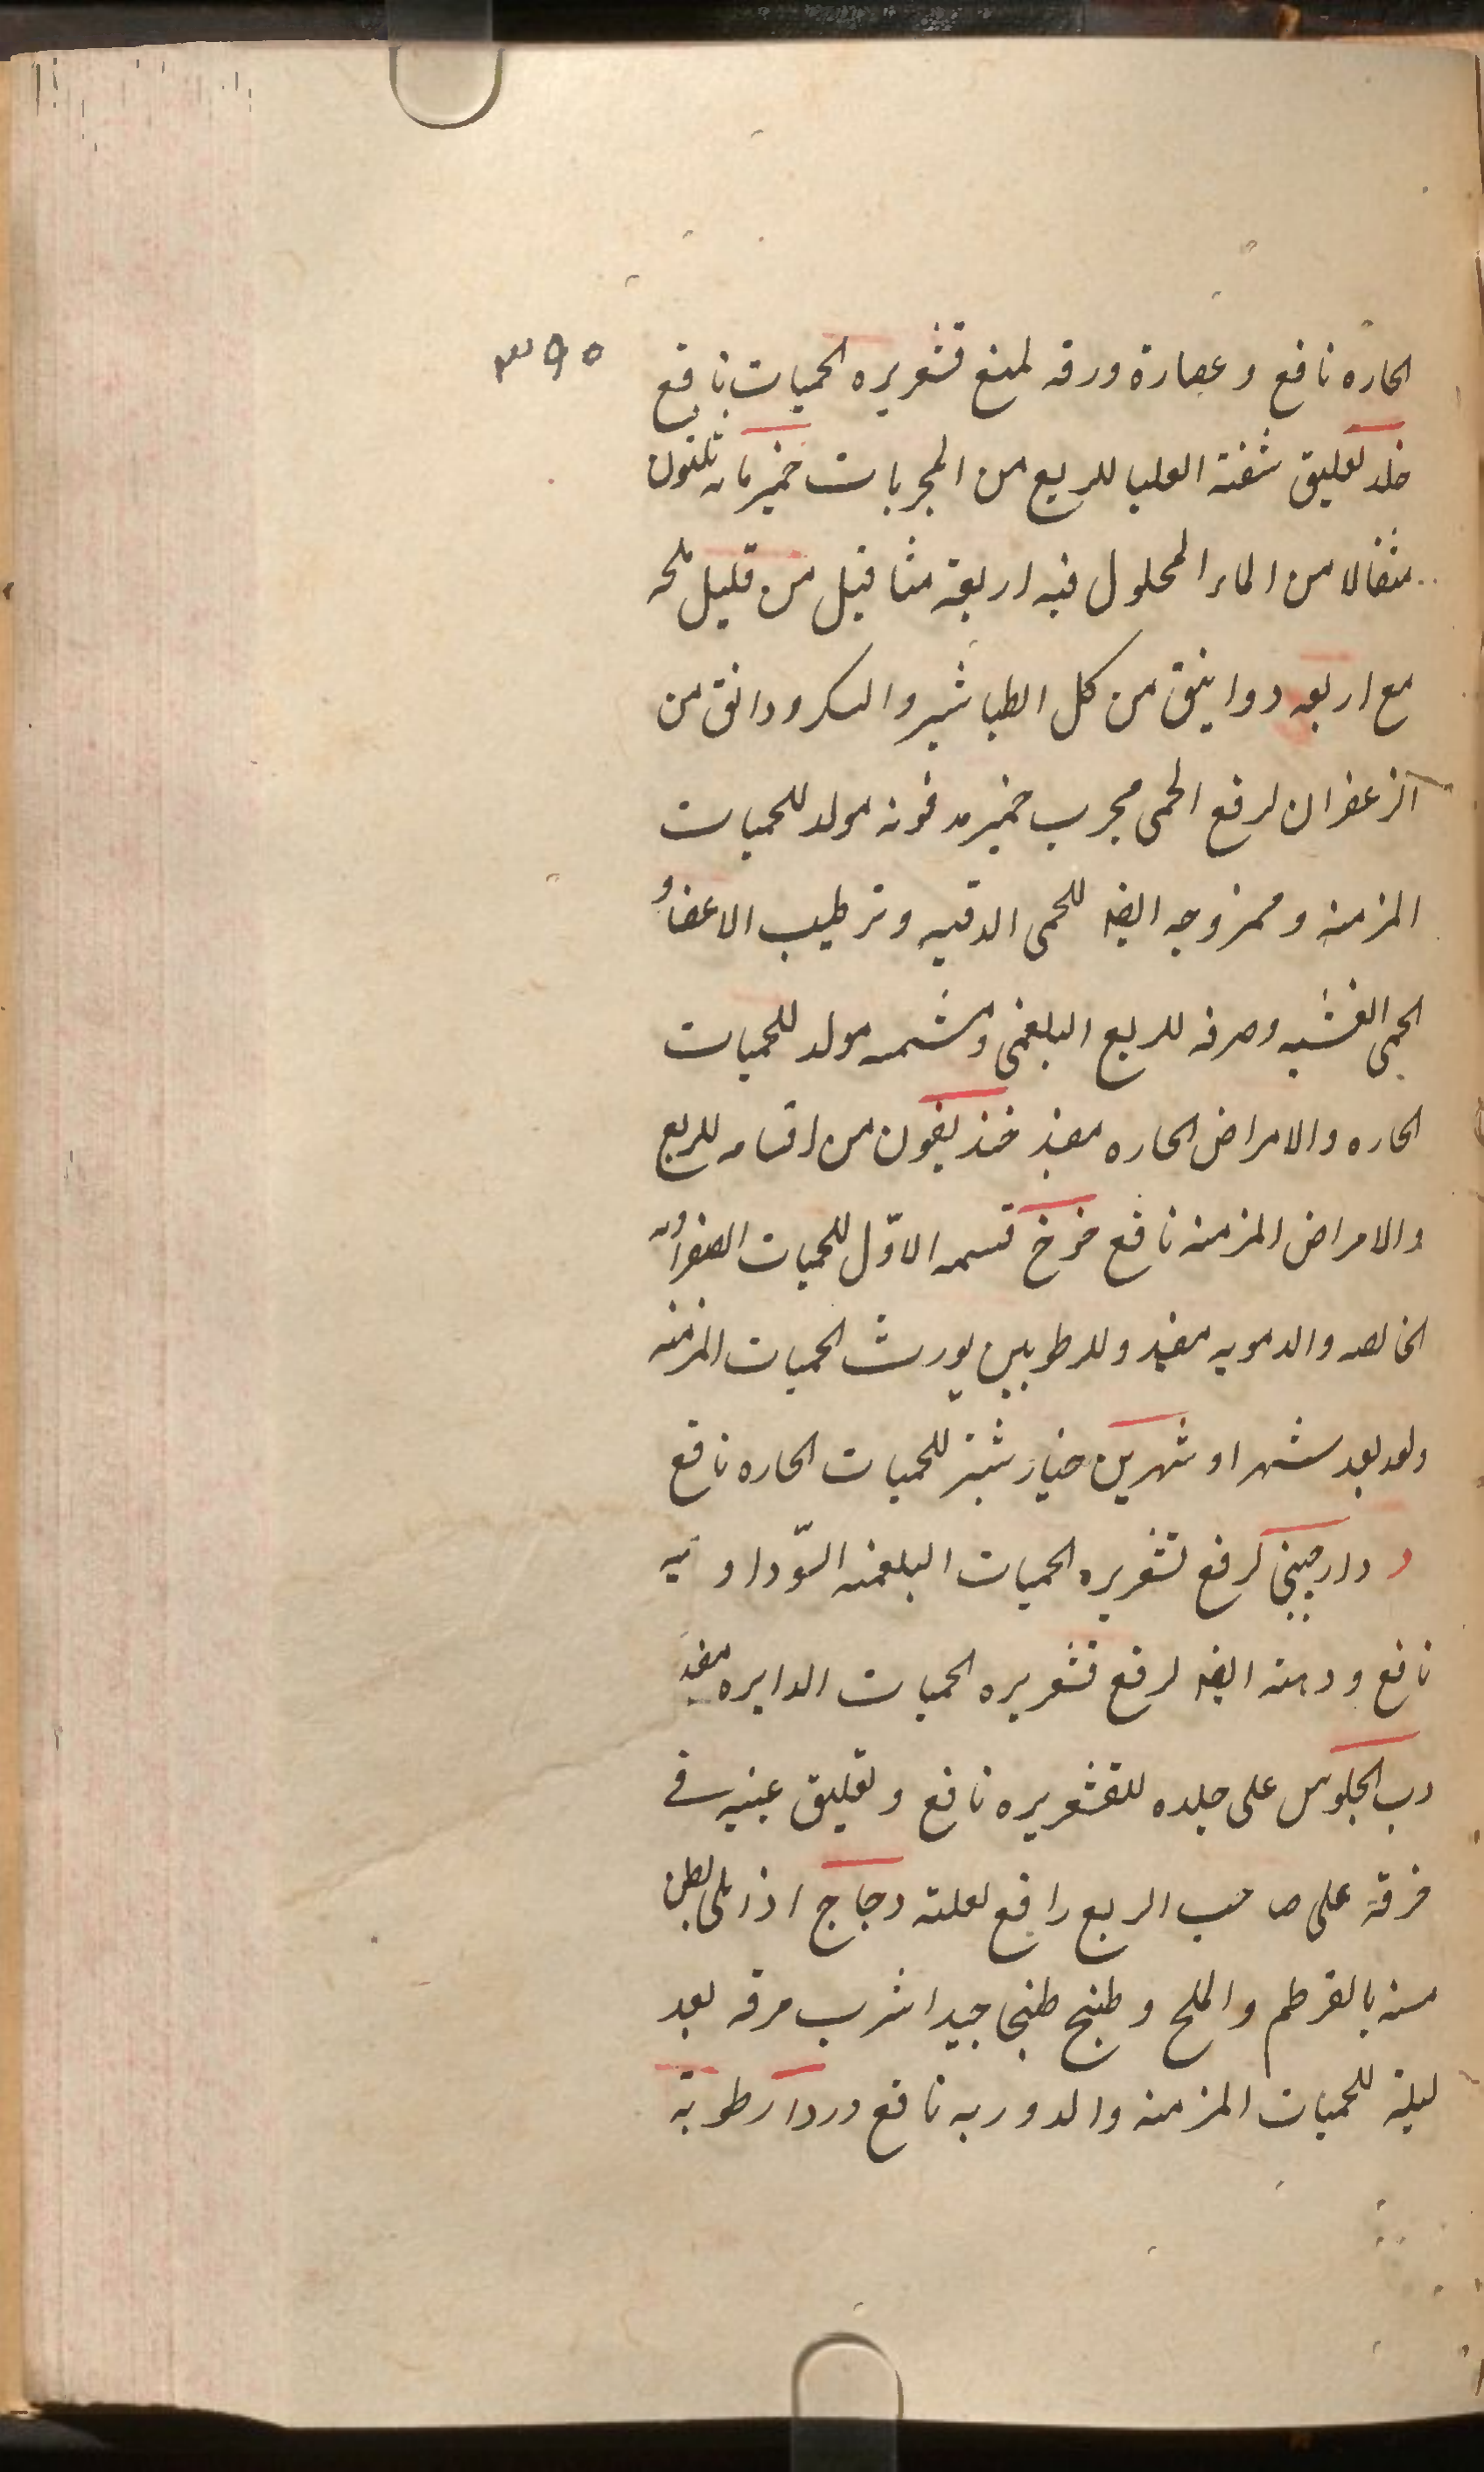 ۳۹۵
الحاره نافع و عصارة ورقه لمنع قشعريره الحميات نافع
خلد تعليق شفته العليا للربع من المجربات خمير مائه ثلثون
مثقالا من الماء المحلول فيه اربعة مثاقيل من قليل ملحه
مع اربعه دوانيق من كل الطباشير والسكر و دانق من
الزعفران لرفع الحمى مجرب خمير مدفونه مولد للحميات
المزمنه و ممزوجه ايضا للحمى الدقيه و ترطيب الاعضا و
الحمى الغشيه و صرفه للربع البلغمى و مشمسه مولد للحميات
الحاره والامراض الحاره مفيد خنديقون من اقسامه للربع
والامراض المزمنه نافع خوخ قسمه الاوّل للحميات الصفراويه
الخالصه والدمويه مفيد وللرطوبين يورث الحميات المزمنه
ولو بعد شهر او شهرين خيارشنبر للحميات الحاره نافع
د دارصينى لرفع قشعريره الحميات البلغميه السّوداويه
نافع و دهنه ايضا لرفع قشعريره الحميات الدايره مفيد
دب الجلوس على جلده للقشعريره نافع و تعليق عينيه فى
خرقة على صاحب الربع رافع لعلته دجاج اذا ملى بطن
مسنه بالقرطم والملح و طبخ طبخا جيدا شرب مرقه بعد
ليلة للحميات المزمنه والدوريه نافع دردار رطوبة